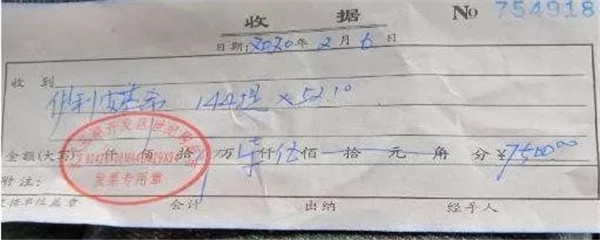 收 据 No 754918
日期:2020年2月6日
收到
伊利安慕希 144提×52.10
金额(大写) 仟 佰 拾 万 柒仟伍佰 拾 元 角 分 ¥750000
附注: 发票专用章
会计 出纳 经手人